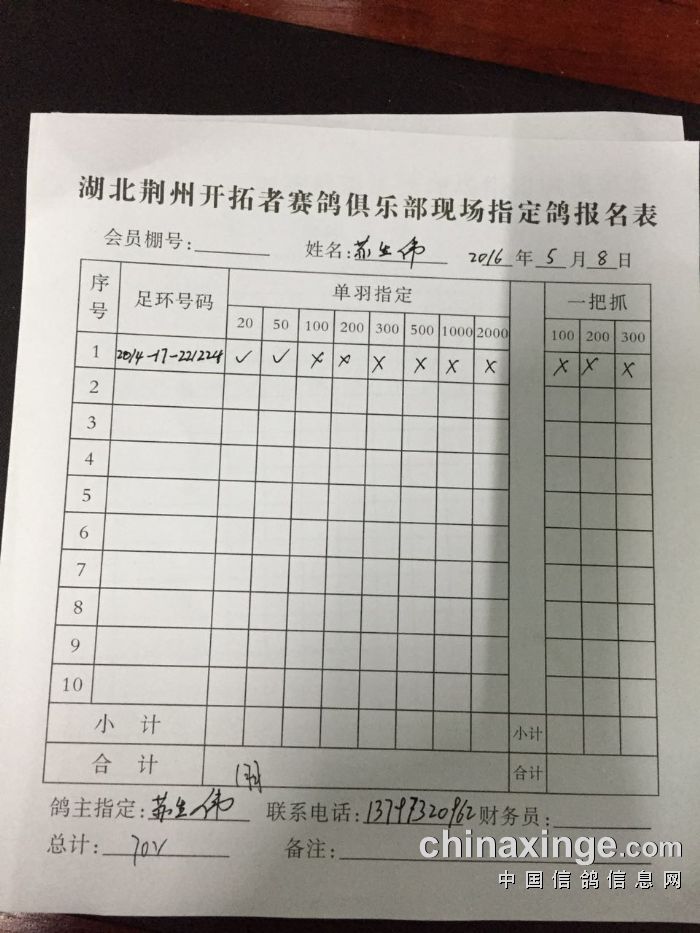 湖北荆州开拓者赛鸽俱乐部现场指定鸽报名表
会员棚号: 姓名: 苏生伟 2016年5月8日
序号 足环号码 单羽指定 一把抓
20 50 100 200 300 500 1000 2000 100 200 300
1 2014-17-221224 ✓ ✓ × × × × × × × × ×
2
3
4
5
6
7
8
9
10
小计 小计
合计 1羽 合计
鸽主指定: 苏生伟 联系电话: 13797320962 财务员:
总计: 70 备注:
chinaxinge.com
中国信鸽信息网